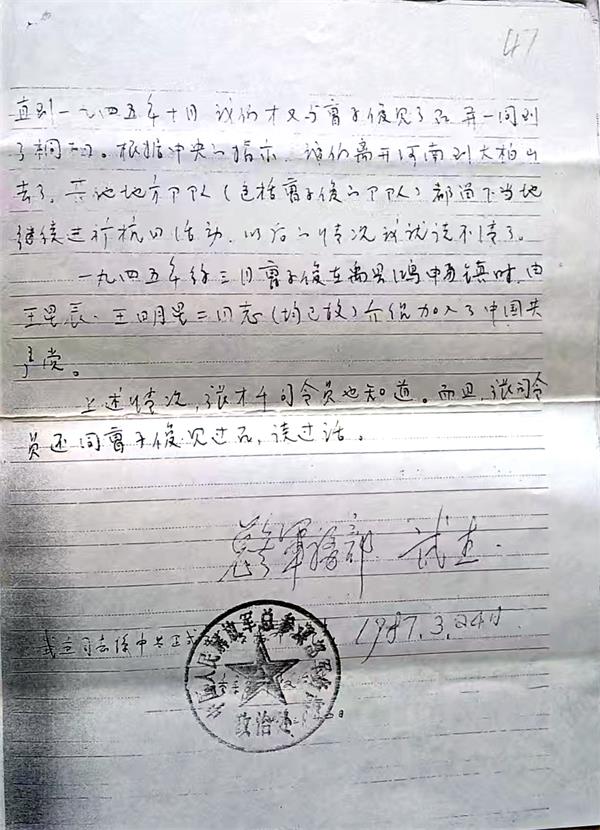 47
直到一九四五年十月 我们才又与离子俊见了面 并一同到
了桐柏。根据中央的指示，我们离开河南到大柏山
去了，其他地方部队（包括离子俊的部队）都留下当地
继续进行抗日活动，以后的情况我就说不清了。
一九四五年经三月离子俊在禹县鸿畅镇时，由
王星辰、王明星二同志（均已故）介绍加入了中国共
产党。
上述情况，张才千司令员也知道。而且，张司令
员还同离子俊见过面，谈过话。
总参军务部 武杰.
1987.3.24日
同志系中共正式
中国人民解放军总参谋部军务部
政治处